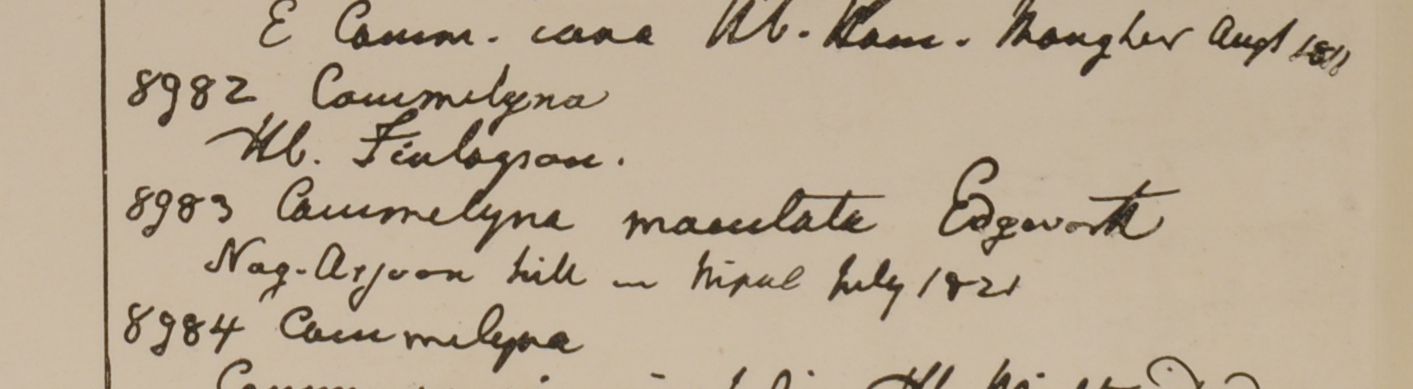 E Comm. cana Hb. Ham. Mongher Augt 1811
8982 Commelyna
Hb. Finlayson.
8983 Commelyna maculata Edgeworth
Nag-Arjoon hill in Nipal July 1821
8984 Commelyna
Comm.